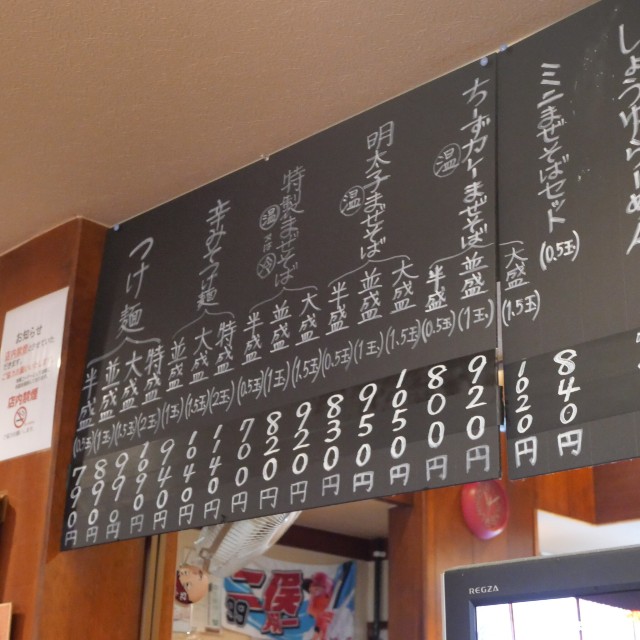 しょうゆらーめん
ミニまぜそばセット (0.5玉) 840円
ちーずカレーまぜそば 温
大盛 (1.5玉) 1020円
並盛 (1玉) 920円
半盛 (0.5玉) 800円
明太子まぜそば 温
大盛 (1.5玉) 1050円
並盛 (1玉) 950円
半盛 (0.5玉) 830円
特製まぜそば 温 又は 冷
大盛 (1.5玉) 920円
並盛 (1玉) 820円
半盛 (0.5玉) 700円
辛みそつけ麺
特盛 (2玉) 1140円
大盛 (1.5玉) 1040円
並盛 (1玉) 940円
つけ麺
特盛 (2玉) 1090円
大盛 (1.5玉) 990円
並盛 (1玉) 890円
半盛 (0.5玉) 790円
お知らせ
店内禁煙
店内禁煙
二俣
39
REGZA